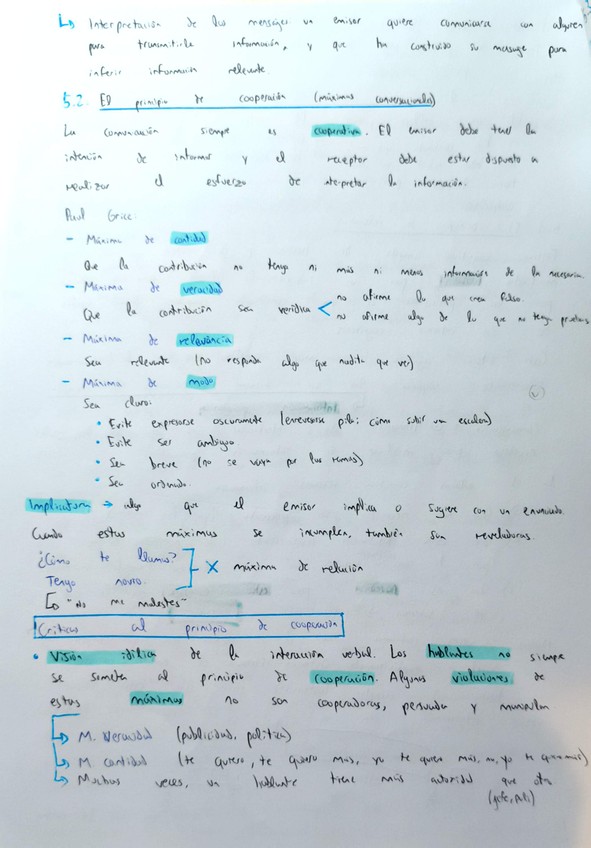 ↳ Interpretación de los mensajes un emisor quiere comunicarse con alguien
para transmitirle información, y que ha construido su mensaje para
inferir información relevante
5.2. El principio de cooperación (máximas conversacionales)
La comunicación siempre es cooperativa. El emisor debe tener la
intención de informar y el receptor debe estar dispuesto a
realizar el esfuerzo de interpretar la información.
Paul Grice:
- Máxima de cantidad
Que la contribución no tenga ni más ni menos información de la necesaria.
- Máxima de veracidad
no afirme lo que crea falso.
Que la contribución sea verídica <
no afirme algo de lo que no tenga pruebas
- Máxima de relevancia
Sea relevante (no responda algo que nada tenga que ver)
- Máxima de modo
Sea claro:
• Evite expresarse oscuramente (enrevesarse cómo subir una escalera)
• Evite ser ambiguo
• Sea breve (no se vaya por las ramas)
• Sea ordenado.
Implicatura → algo que el emisor implica o sugiere con un enunciado.
Cuando estas máximas se incumplen, también son reveladoras.
¿Cómo te llamas?
X máxima de relación
Tengo novio.
↳ "No me molestes"
Críticas al principio de cooperación
• Visión idílica de la interacción verbal. Los hablantes no siempre
se someten al principio de cooperación. Algunas violaciones de
estas máximas no son cooperadoras, persuada y manipulan
↳ M. Veracidad (publicidad, política)
↳ M. cantidad (te quiero, te quiero más, yo te quiero más, no, yo te quiero más)
↳ Muchas veces, un hablante tiene más autoridad que otro
(jefe,